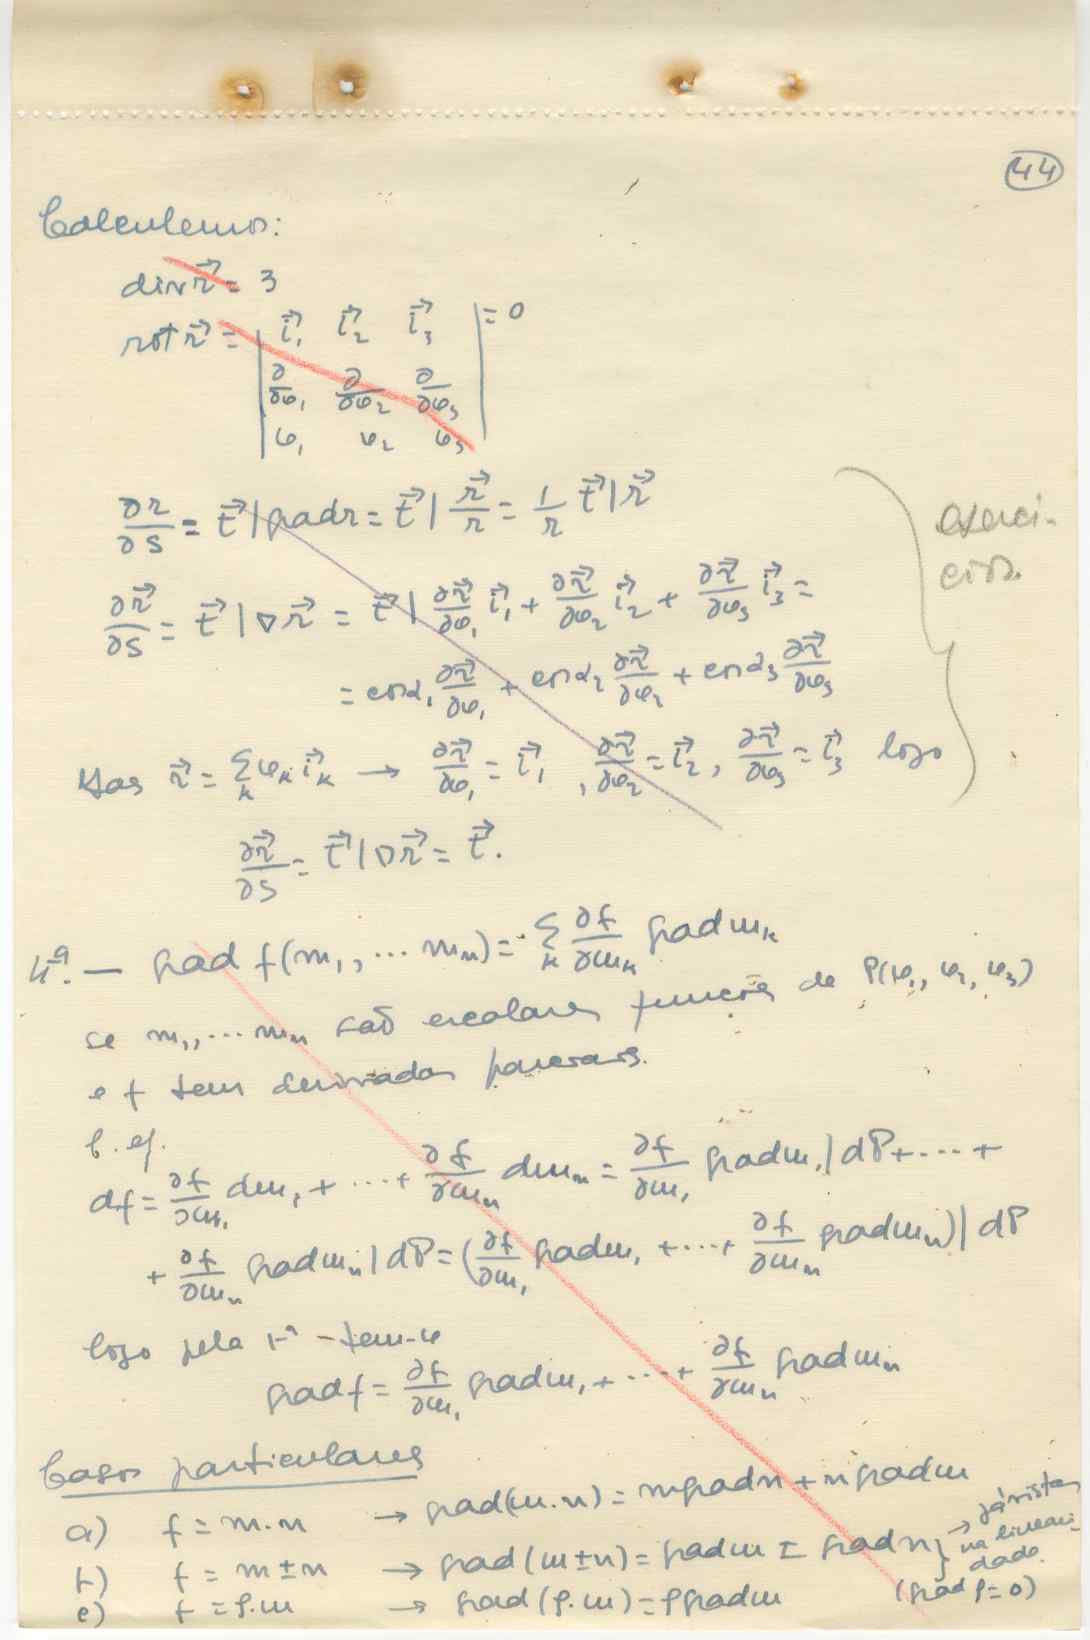 44
Calculemos:
div r⃗ = 3
rot r⃗ = | i⃗₁ i⃗₂ i⃗₃ | = 0
∂/∂φ₁ ∂/∂φ₂ ∂/∂φ₃
φ₁ φ₂ φ₃
∂r/∂s = t⃗ | grad r = t⃗ | r⃗/r = 1/r t⃗ | r⃗
exercí-
cios.
∂r⃗/∂s = t⃗ | ∇r⃗ = t⃗ | ∂r⃗/∂φ₁ i⃗₁ + ∂r⃗/∂φ₂ i⃗₂ + ∂r⃗/∂φ₃ i⃗₃ =
= cos α₁ ∂r⃗/∂φ₁ + cos α₂ ∂r⃗/∂φ₂ + cos α₃ ∂r⃗/∂φ₃
Mas r⃗ = Σₖ φₖ i⃗ₖ → ∂r⃗/∂φ₁ = i⃗₁, ∂r⃗/∂φ₂ = i⃗₂, ∂r⃗/∂φ₃ = i⃗₃ logo
∂r⃗/∂s = t⃗ | ∇r⃗ = t⃗.
4ª. — grad f(m₁, ... mₙ) = Σₖ ∂f/∂mₖ grad mₖ
se m₁, ... mₙ são escalares funções de P(φ₁, φ₂, φ₃)
e f tem derivadas parciais.
C. ef.
df = ∂f/∂m₁ dm₁ + ... + ∂f/∂mₙ dmₙ = ∂f/∂m₁ grad m₁ | dP + ... +
+ ∂f/∂mₙ grad mₙ | dP = (∂f/∂m₁ grad m₁ + ... + ∂f/∂mₙ grad mₙ) | dP
logo pela 1ª - tem-se
grad f = ∂f/∂m₁ grad m₁ + ... + ∂f/∂mₙ grad mₙ
Casos particulares
a) f = m.n → grad(m.n) = m grad n + n grad m
b) f = m ± n → grad (m ± n) = grad m ± grad n } → já vista
na lineari-
dade.
c) f = ρ.m → grad (ρ.m) = ρ grad m (grad ρ = 0)